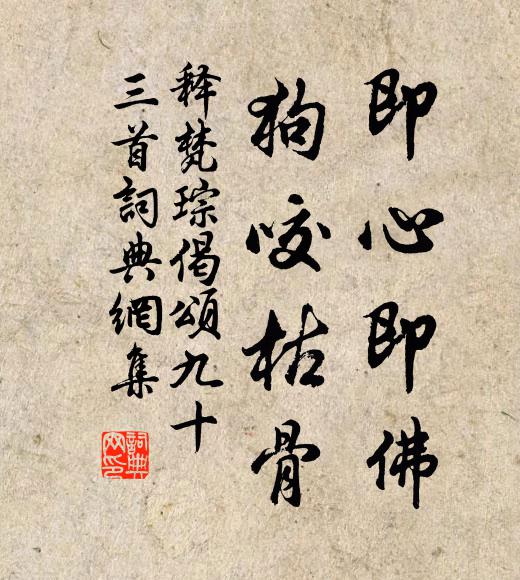 即心即佛
狗咬枯骨
释梵琮偈頌九十
三首詞典網集
詞典
网印